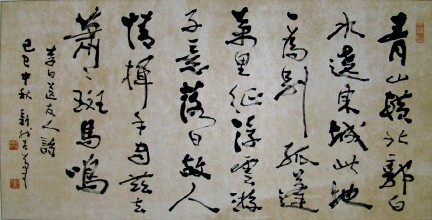 青山橫北郭白
水遶東城此地
一為別孤蓬
萬里征浮雲游
子意落日故人
情揮手自茲去
蕭〻斑馬鳴
李白送友人詩
己巳中秋